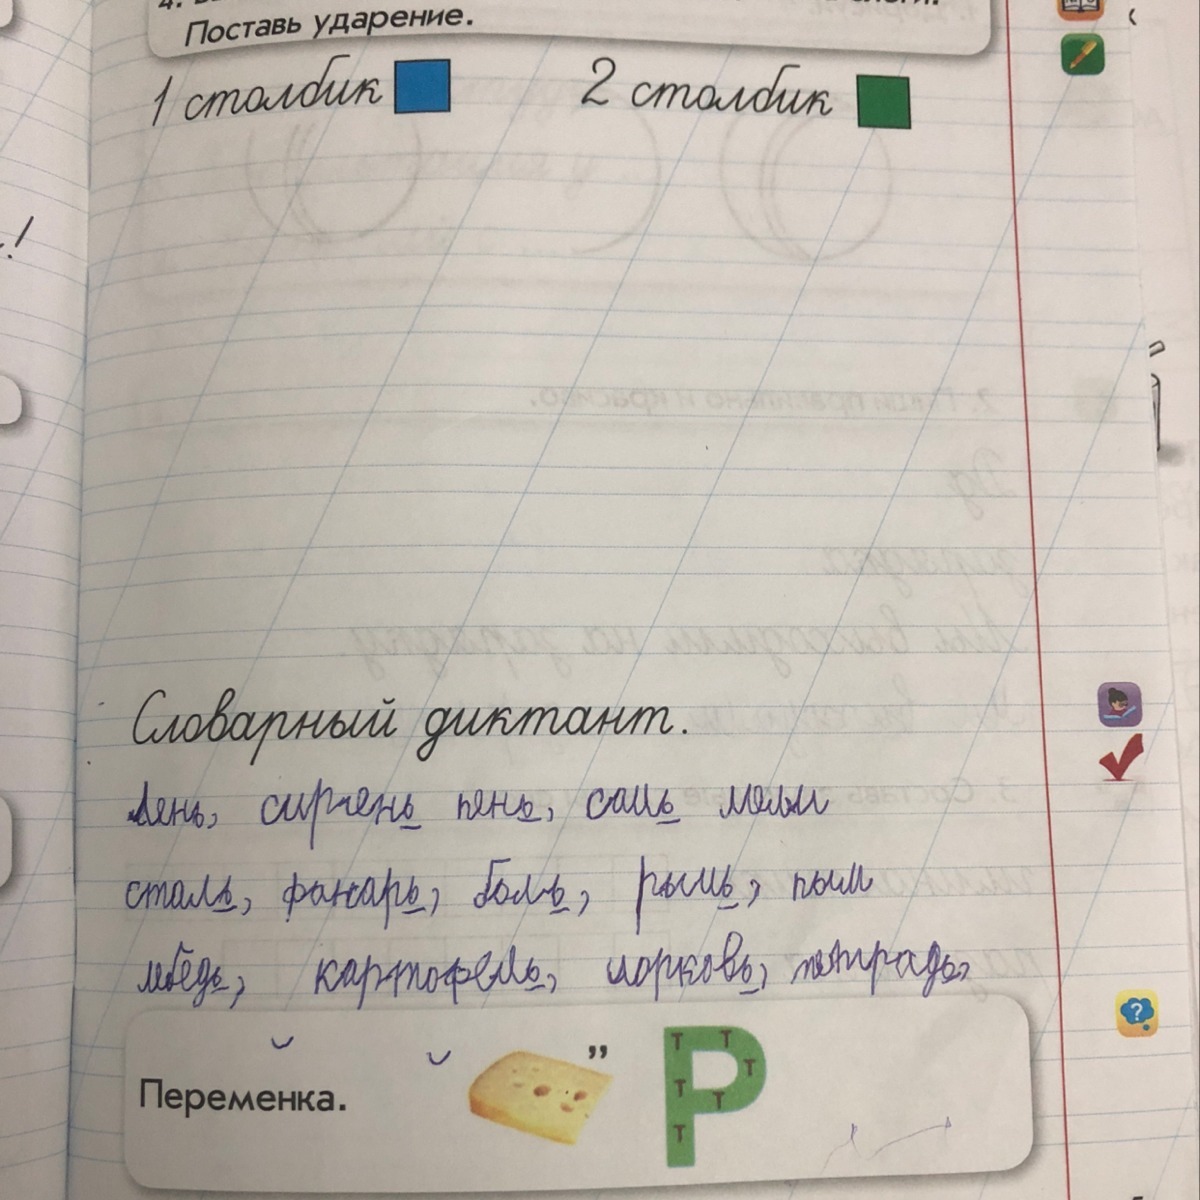 4.
Поставь ударение.
1 столбик 2 столбик
Словарный диктант.
день, сирень пень, соль мель
сталь, фанарь, боль, рысь, пыль
лебедь, картофель, морковь, тетрадь,
Переменка. ,, Р Т Т Т Т Т Т